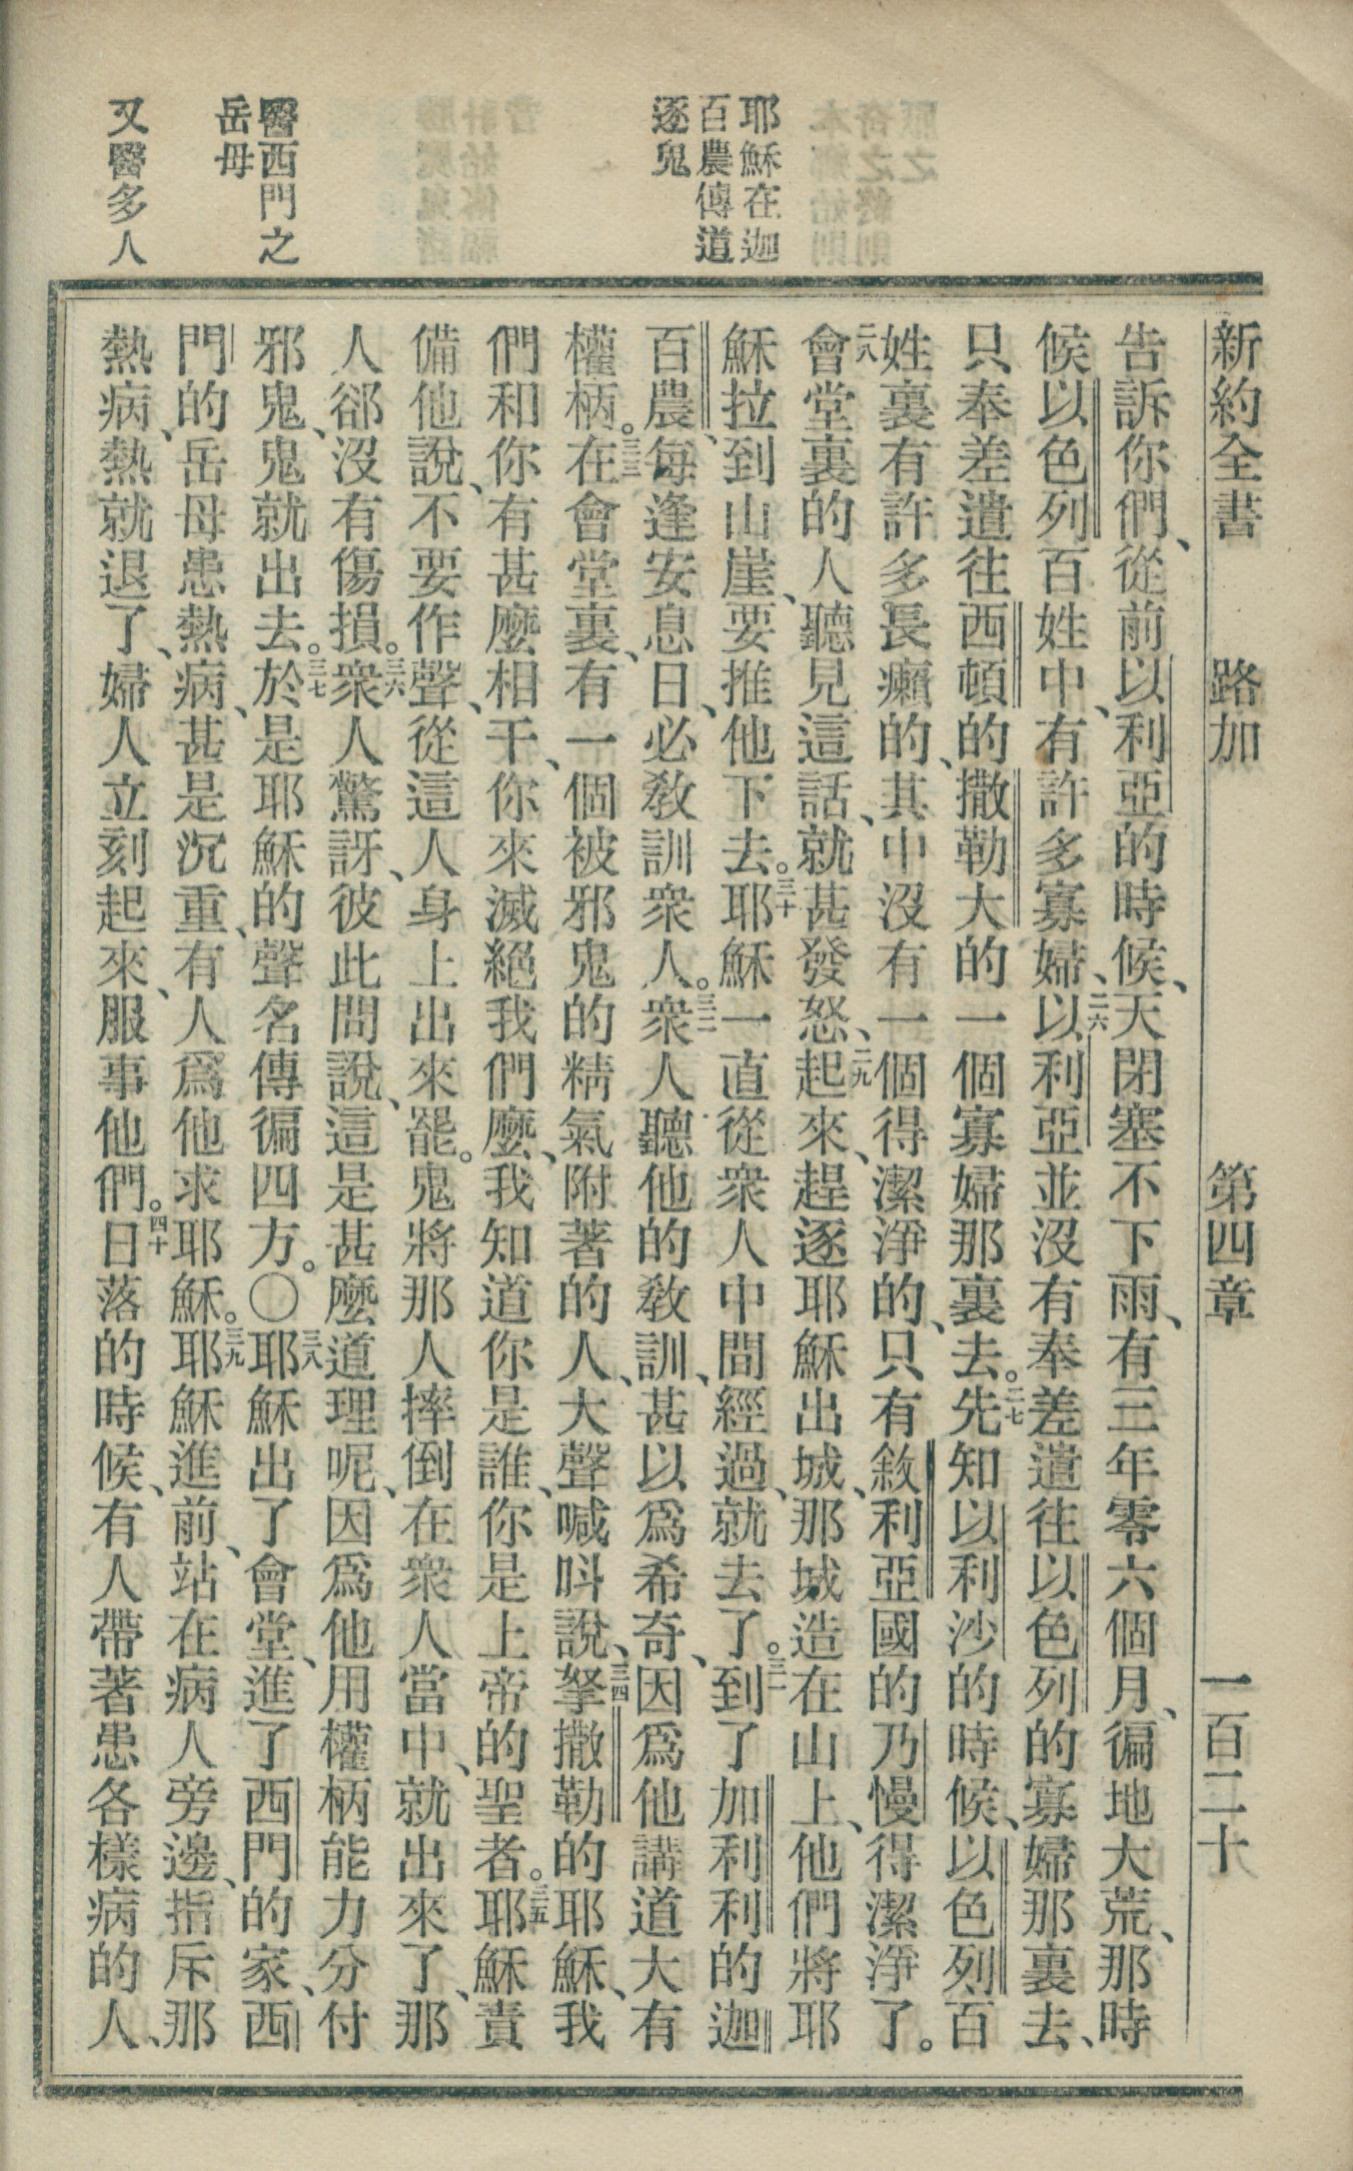 新約全書　路加　第四章　一百二十
耶穌在迦
百農傳道
逐鬼
醫西門之
岳母
又醫多人
告訴你們、從前以利亞的時候、天閉塞不下雨、有三年零六個月、徧地大荒、那時
候以色列百姓中、有許多寡婦、二六以利亞並沒有奉差遣往以色列的寡婦那裏去、
只奉差遣往西頓的撒勒大的一個寡婦那裏去。二七先知以利沙的時候、以色列百
姓裏有許多長癩的、其中沒有一個得潔淨的、只有敘利亞國的乃慢得潔淨了。
二八會堂裏的人聽見這話、就甚發怒、二九起來、趕逐耶穌出城、那城造在山上、他們將耶
穌拉到山崖、要推他下去。三十耶穌一直從衆人中間經過、就去了。三一到了加利利的迦
百農、每逢安息日、必敎訓衆人。三二衆人聽他的敎訓、甚以爲希奇、因爲他講道大有
權柄。三三在會堂裏、有一個被邪鬼的精氣附著的人、大聲喊呌說、三四拏撒勒的耶穌、我
們和你有甚麼相干、你來滅絕我們麼、我知道你是誰、你是上帝的聖者。三五耶穌責
備他說、不要作聲、從這人身上出來罷。鬼將那人摔倒在衆人當中、就出來了、那
人卻沒有傷損。三六衆人驚訝、彼此問說、這是甚麼道理呢、因爲他用權柄能力分付
邪鬼、鬼就出去。三七於是耶穌的聲名傳徧四方。〇三八耶穌出了會堂、進了西門的家、西
門的岳母患熱病、甚是沉重、有人爲他求耶穌。三九耶穌進前、站在病人旁邊、指斥那
熱病、熱就退了、婦人立刻起來、服事他們。四十日落的時候、有人帶著患各樣病的人、